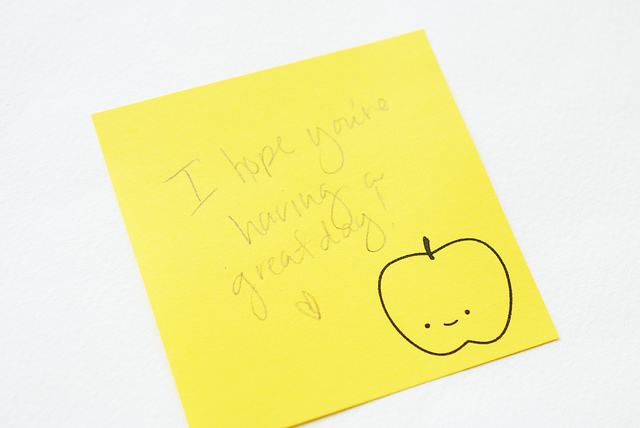 I hope you're
having a
great day!